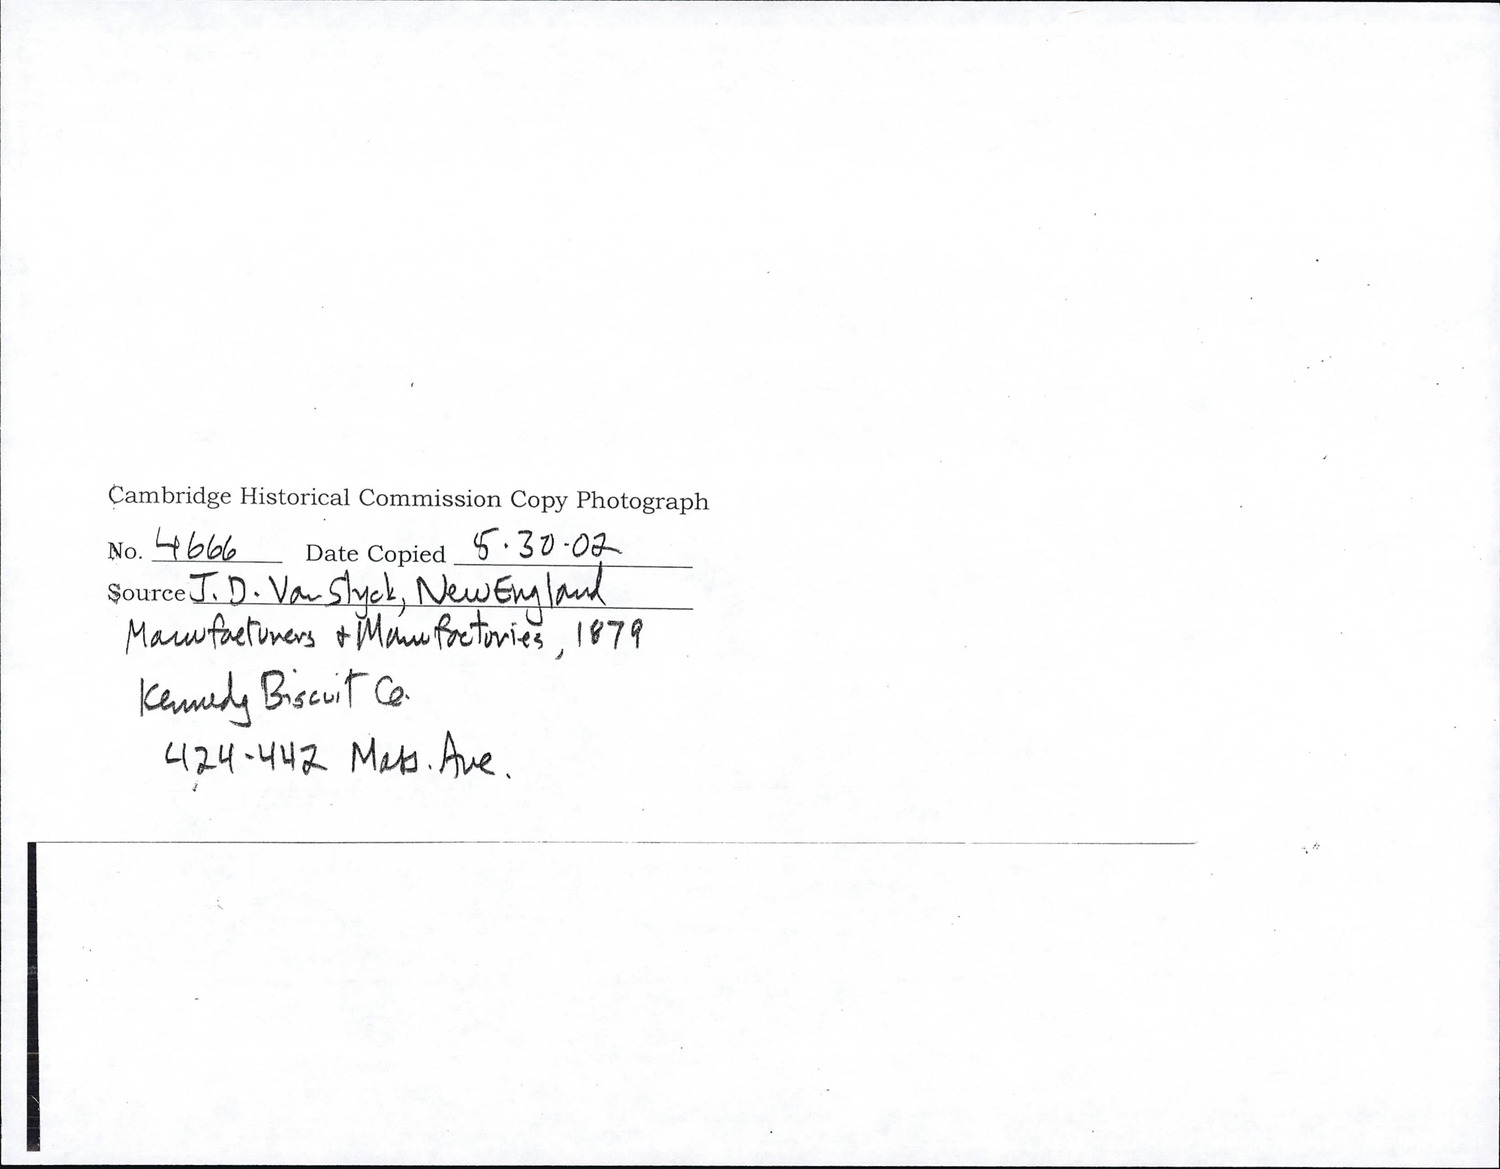 Cambridge Historical Commission Copy Photograph
No. 4666 Date Copied 5.30.02
Source J. D. Van Slyck, New England
Manufacturers + Manufactories, 1879
Kennedy Biscuit Co.
424-442 Mass. Ave.